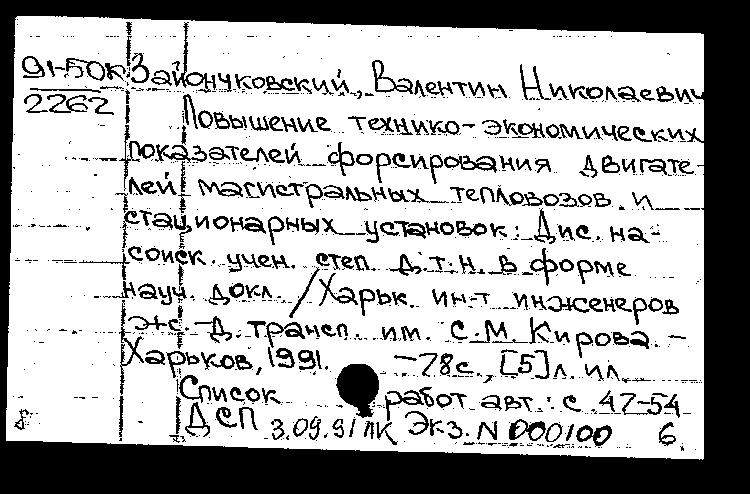 91-50К Зайончковский, Валентин Николаевич
2262 Повышение технико-экономических
показателей форсирования двигате-
лей магистральных тепловозов и
стационарных установок: Дис. на-
соиск. учен. степ. д.т.н. в форме
науч. докл. / Харьк. ин-т инженеров
ж.-д. трансп. им. С.М. Кирова. –
Харьков, 1991. – 78с., [5] л. ил.
Список работ авт.: с. 47-54
8 ДСП 3.09.91 Экз. N 000100 б.